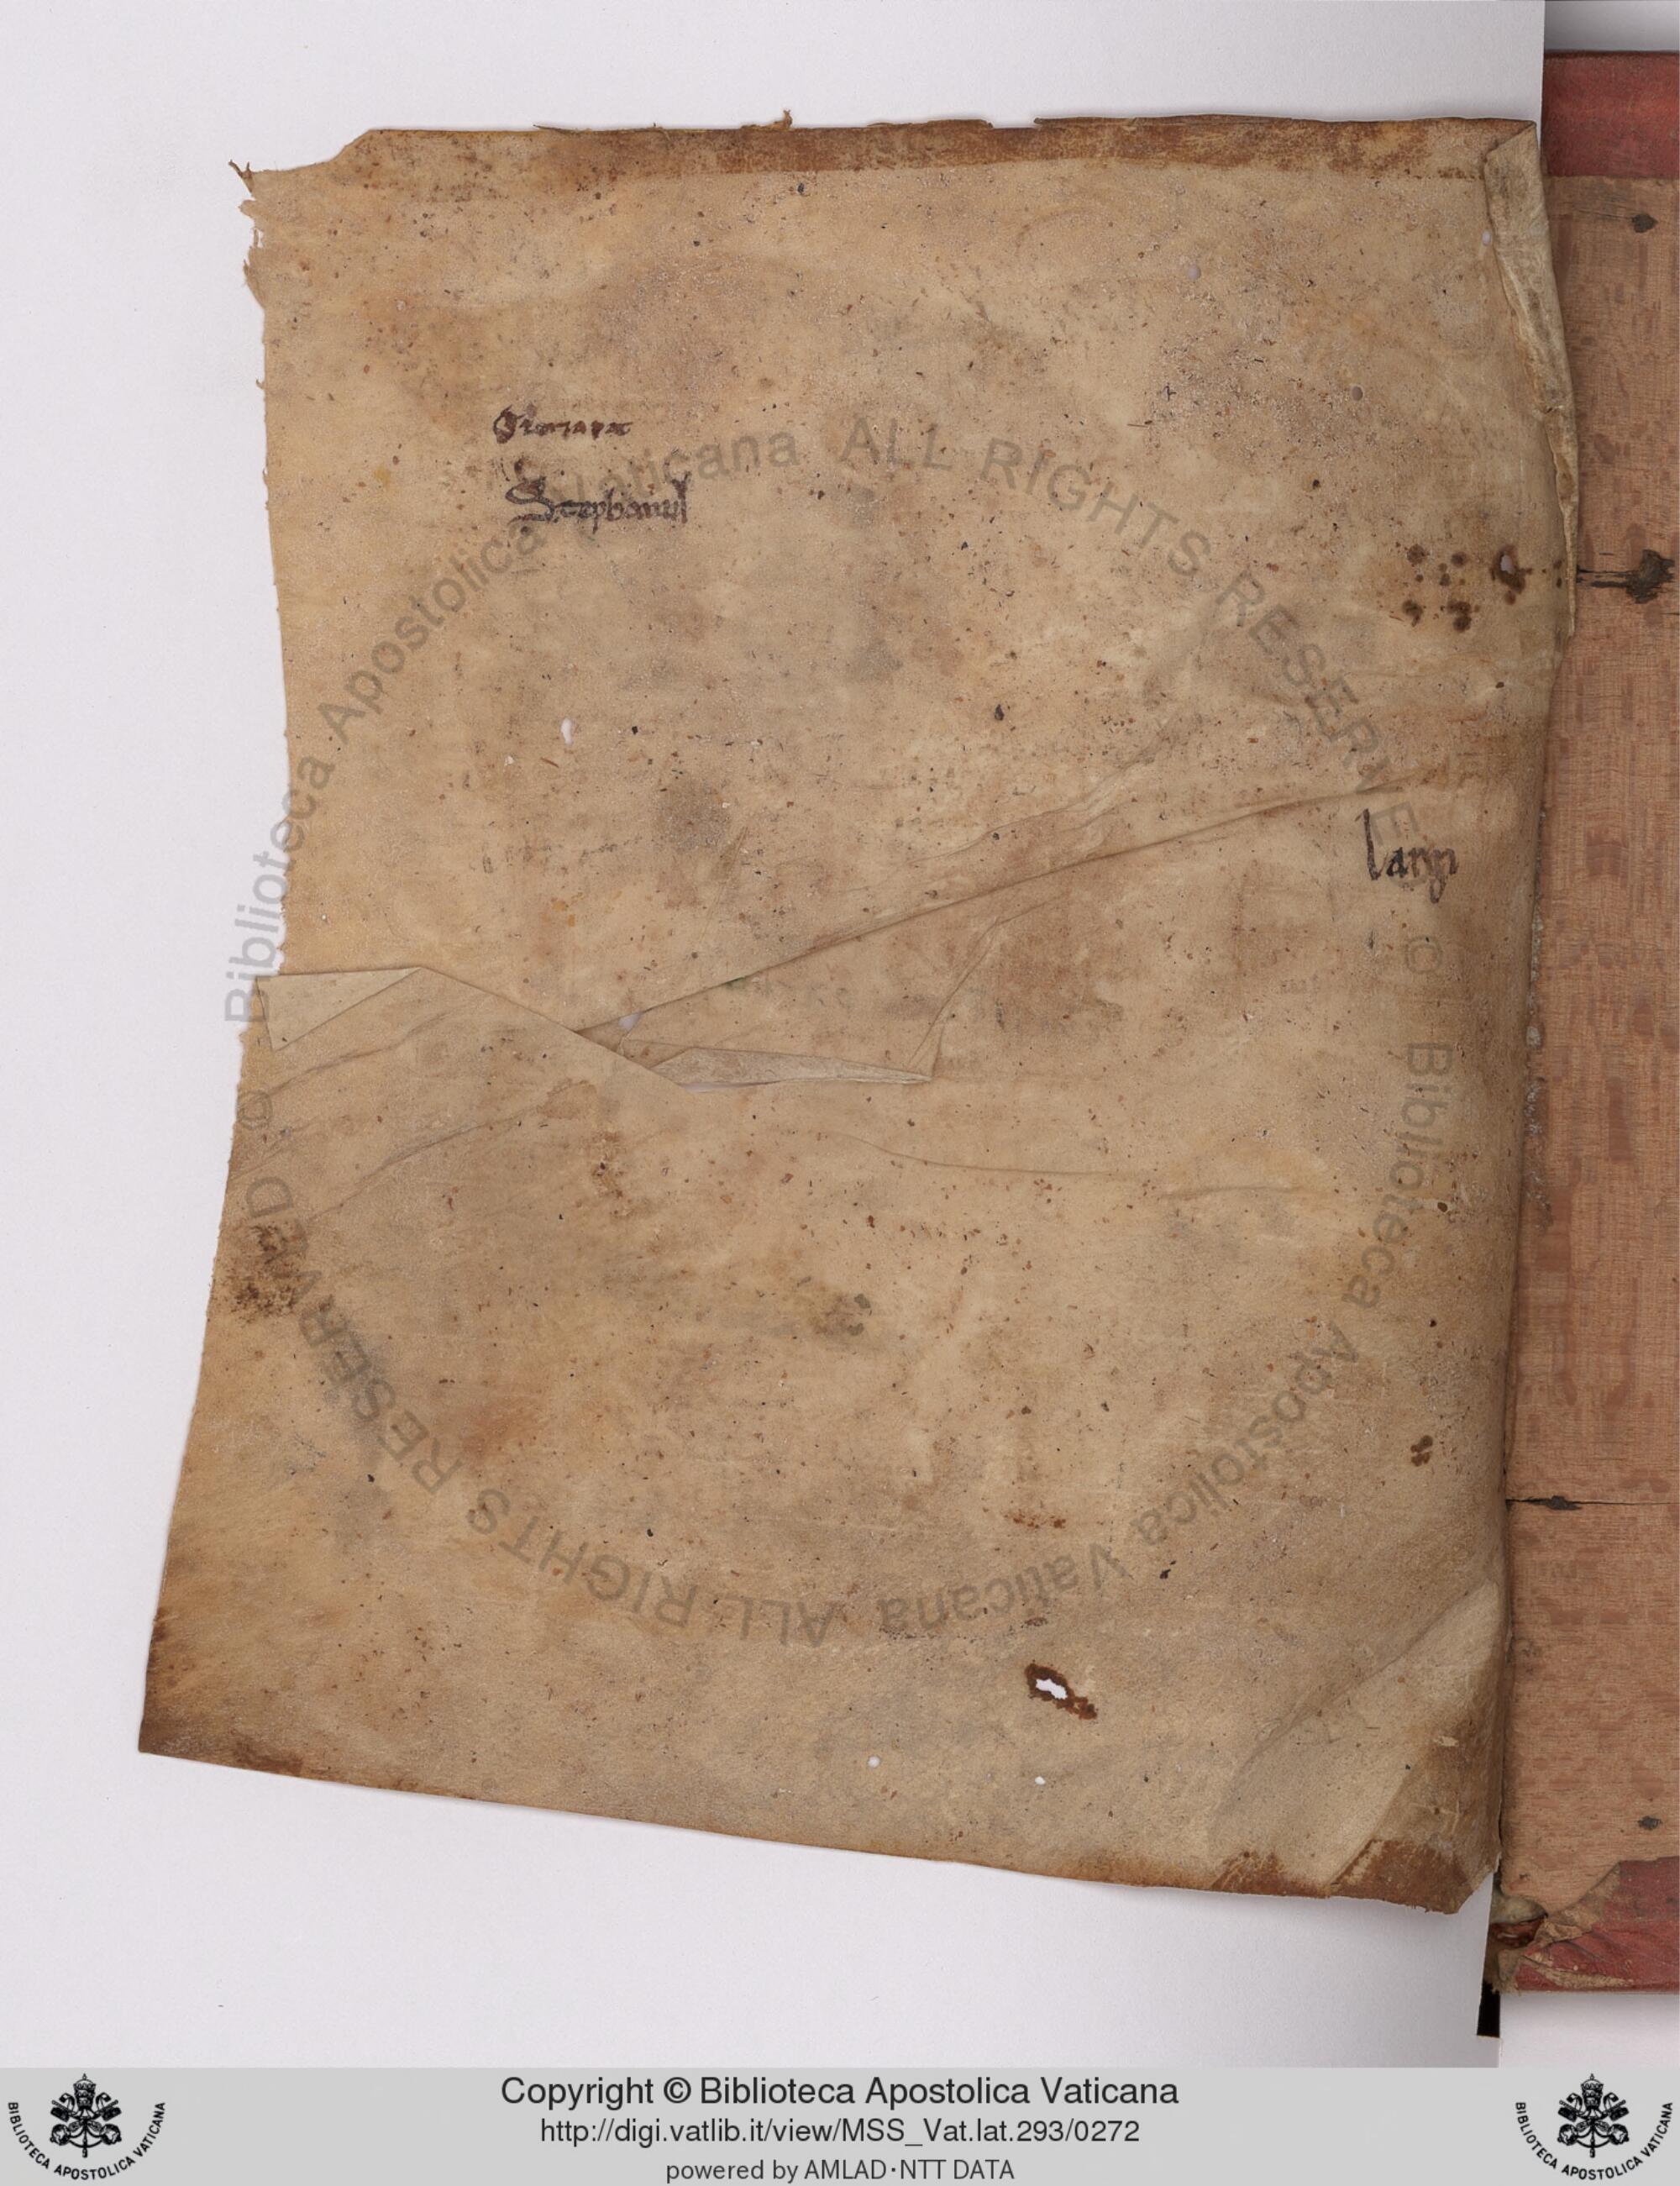 Stephanus
Biblioteca Apostolica Vaticana ALL RIGHTS RESERVED © Biblioteca Apostolica Vaticana ALL RIGHTS RESERVED ©
BIBLIOTECA APOSTOLICA VATICANA
Copyright © Biblioteca Apostolica Vaticana
http://digi.vatlib.it/view/MSS_Vat.lat.293/0272
powered by AMLAD·NTT DATA
BIBLIOTECA APOSTOLICA VATICANA